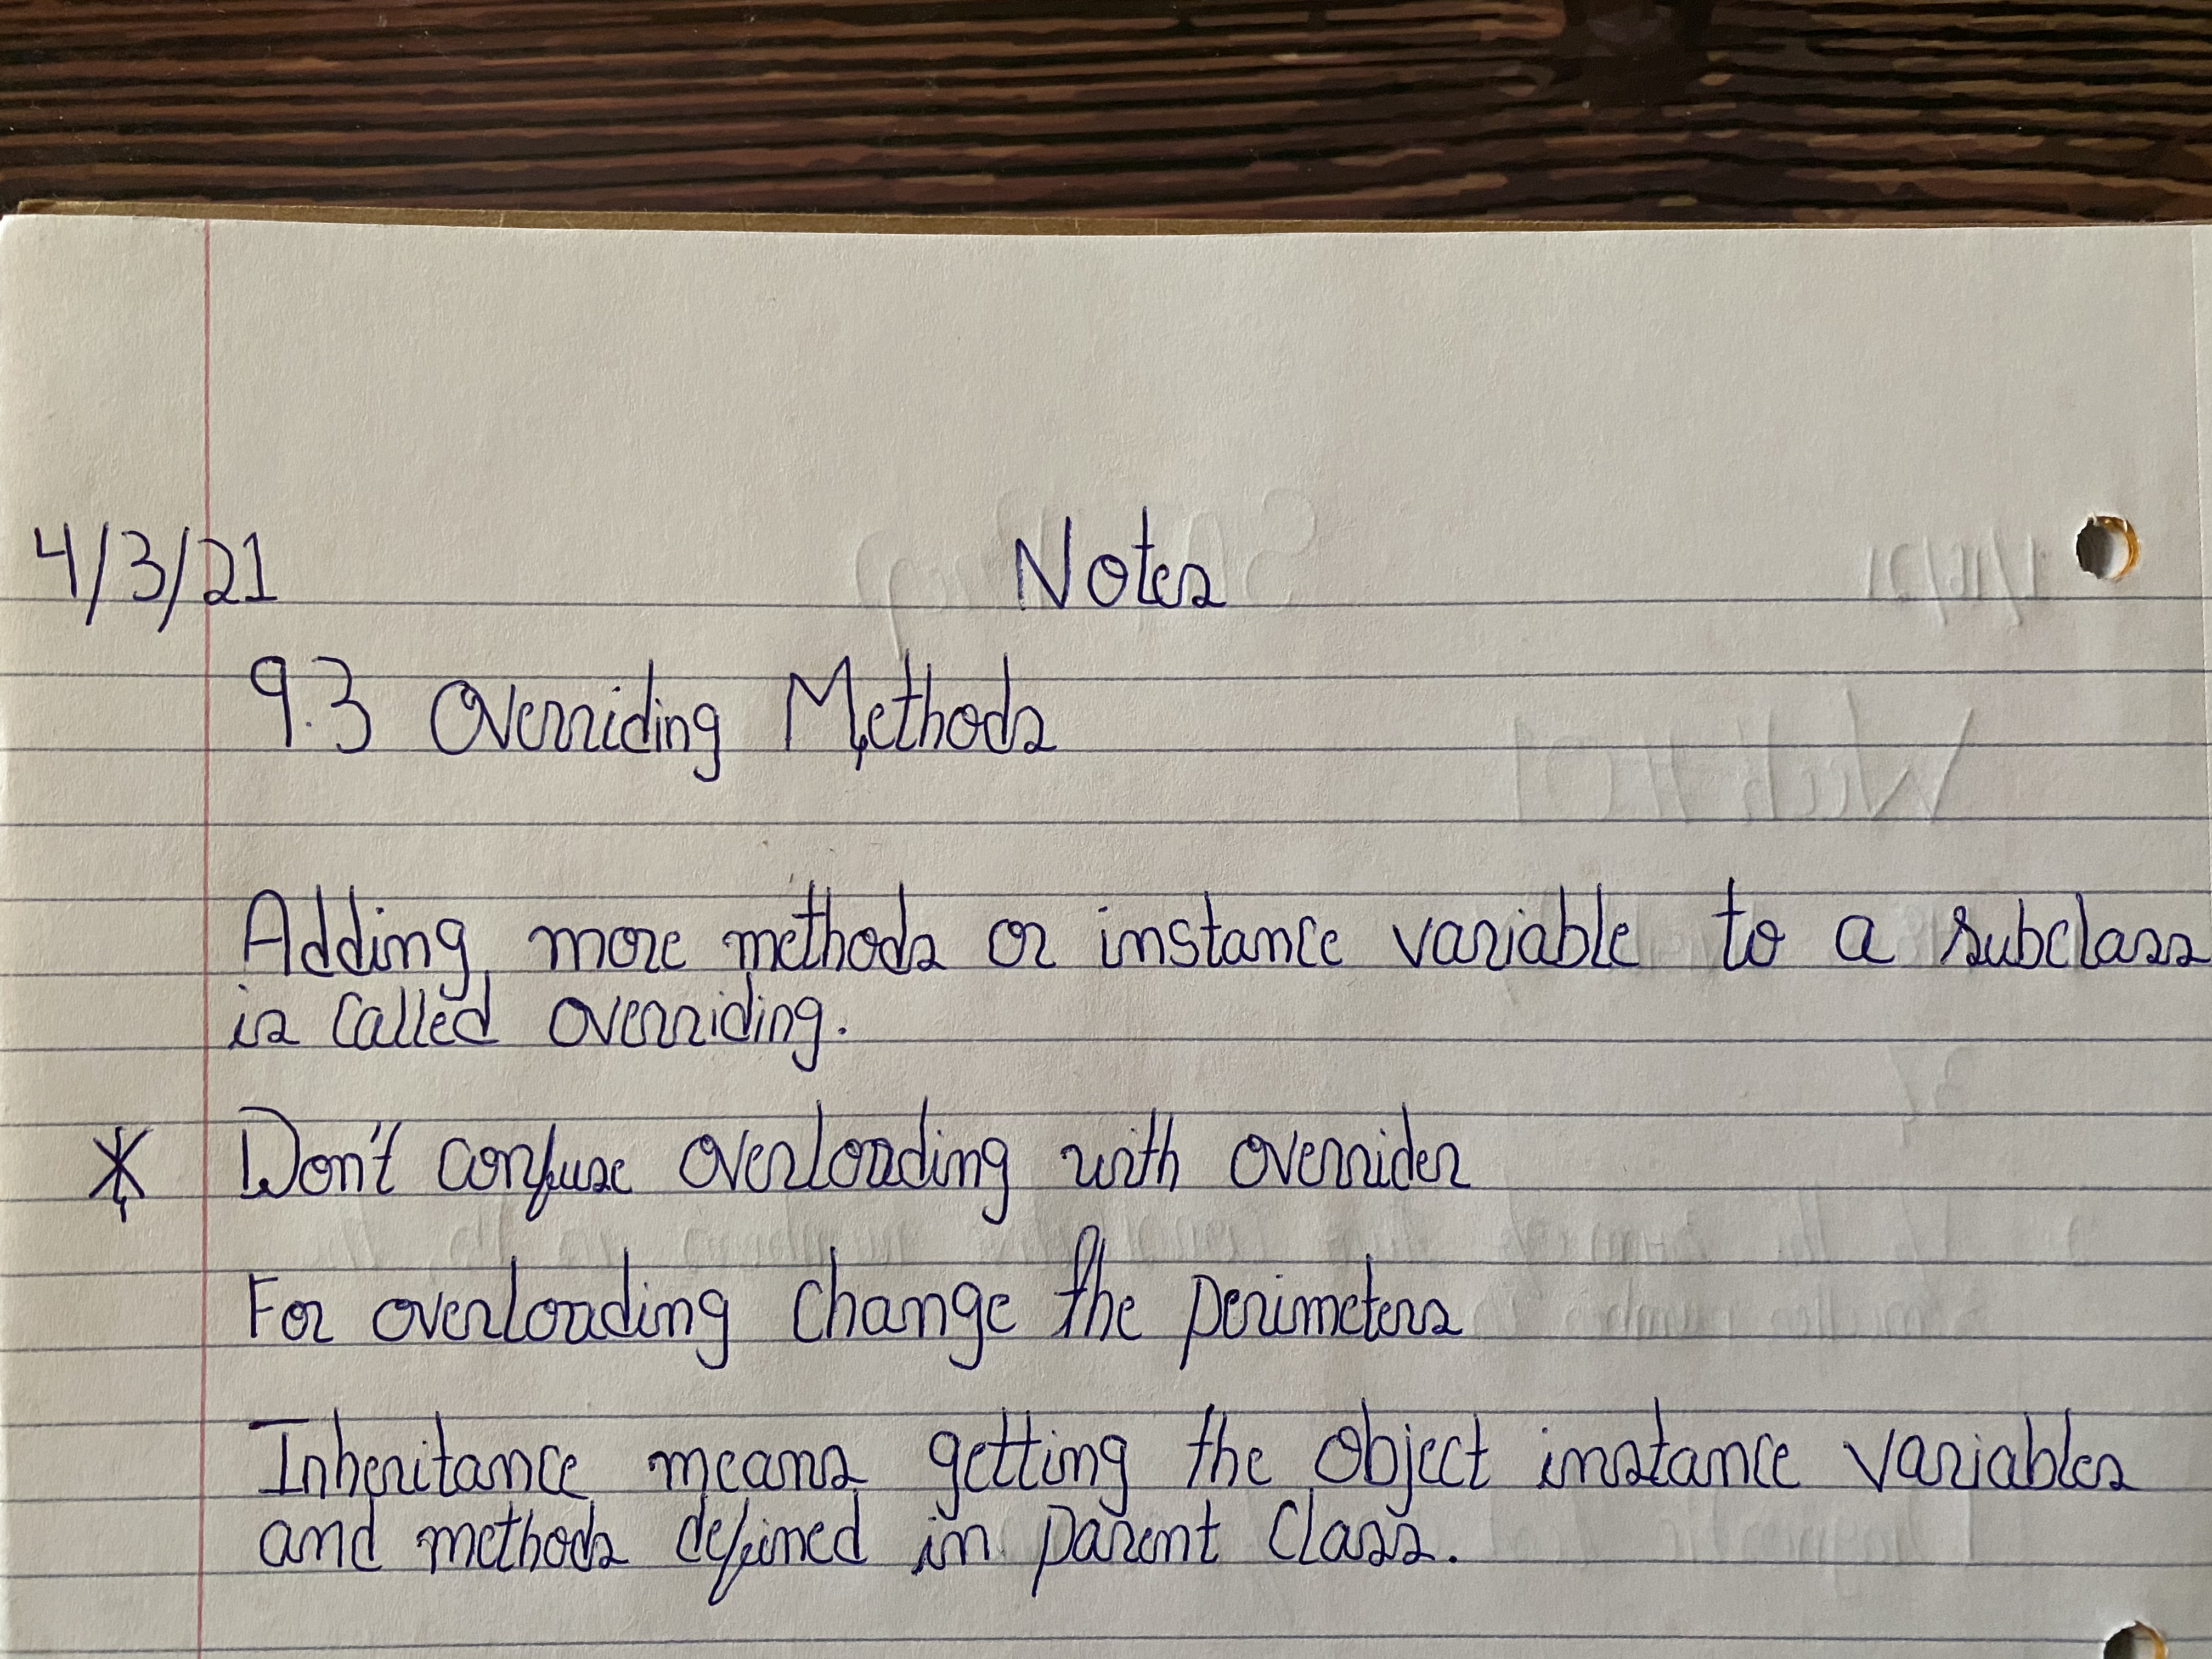 4/3/21 Notes
9.3 Overriding Methods
Adding more methods or instance variable to a subclass
is called overriding.
* Don't confuse overloading with overrider
For overloading change the perimeters
Inheritance means getting the object instance variables
and methods defined in parent class.